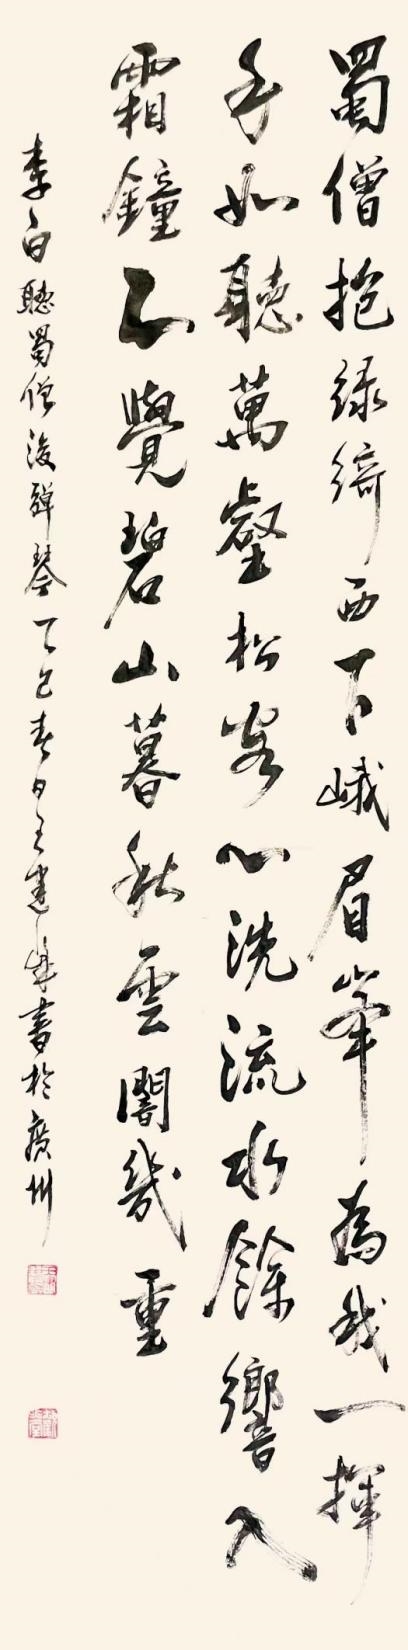 蜀僧抱绿绮西下峨眉峯為我一揮
手如聽萬壑松客心洗流水餘響入
霜鐘不覺碧山暮秋雲闇幾重
李白聽蜀僧浚彈琴乙巳春日王建年書於廣州